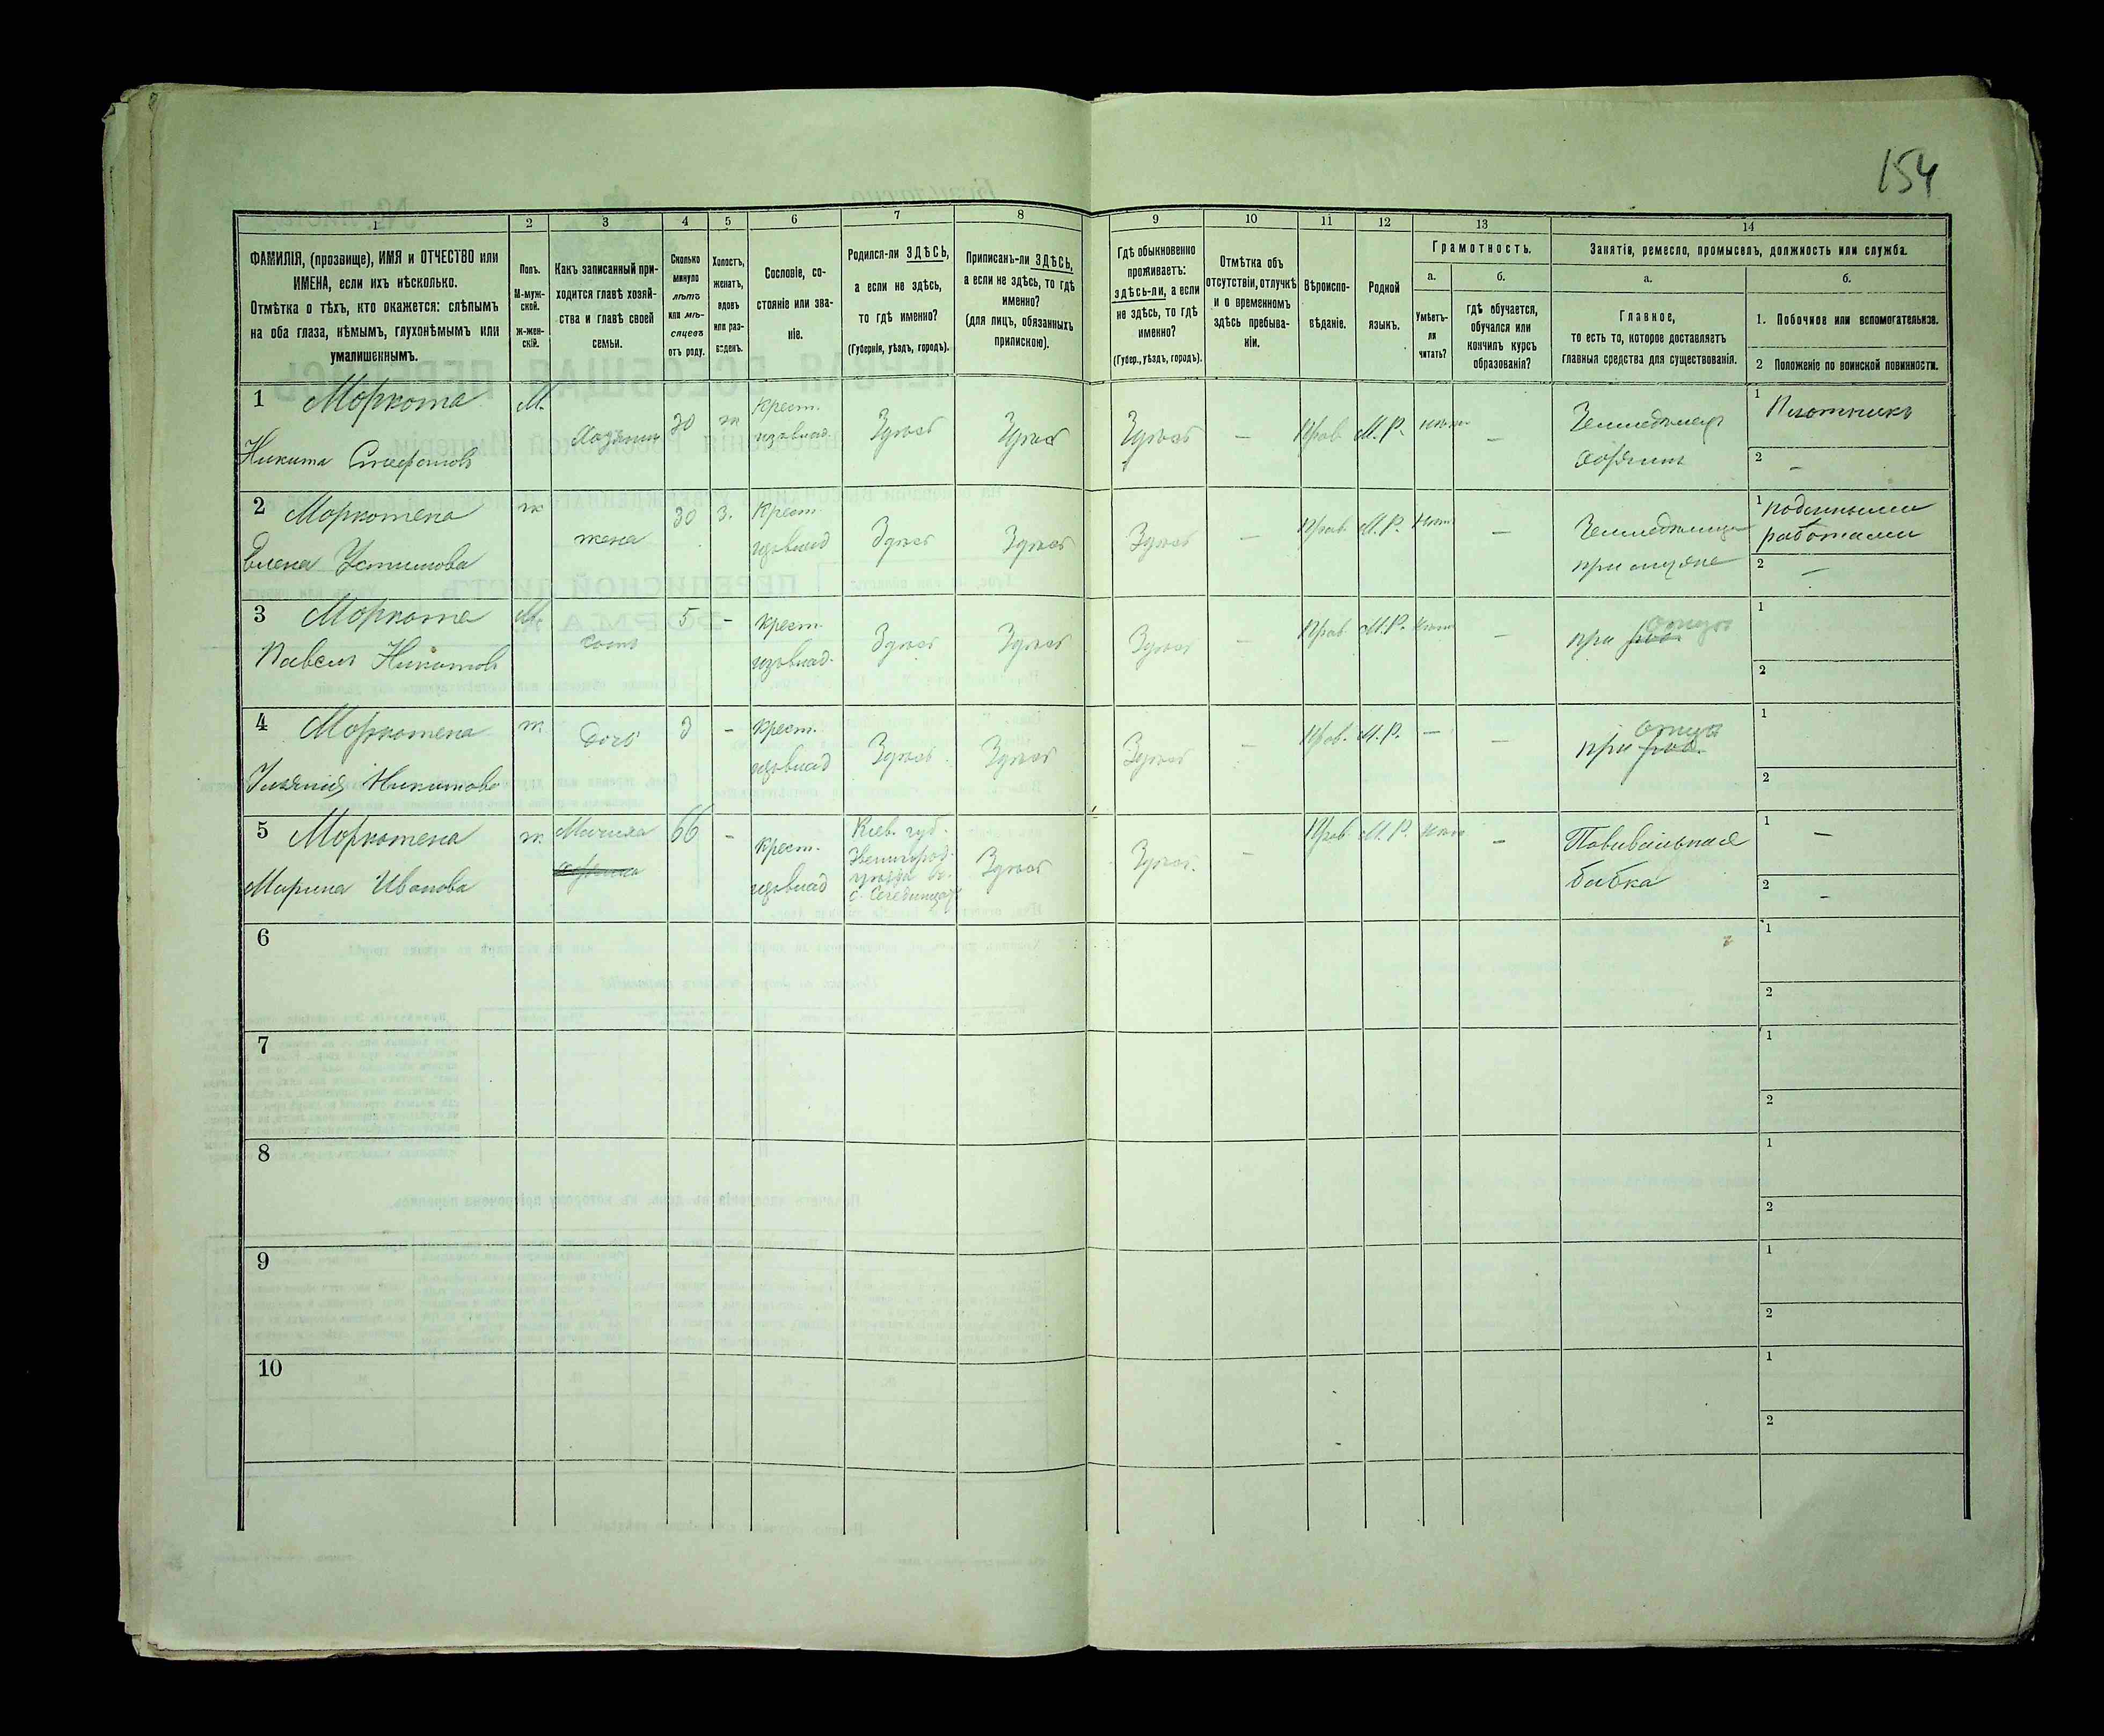 154
1
ФАМИЛІЯ, (прозвище), ИМЯ и ОТЧЕСТВО или
ИМЕНА, если ихъ нѣсколько.
Отмѣтка о тѣхъ, кто окажется: слѣпымъ
на оба глаза, нѣмымъ, глухонѣмымъ или
умалишеннымъ.
2
Полъ.
М-муж-
ской.
ж-жен-
скій.
3
Какъ записанный при-
ходится главѣ хозяй-
ства и главѣ своей
семьи.
4
Сколько
минуло
лѣтъ
или мѣ-
сяцевъ
отъ роду.
5
Холостъ,
женатъ,
вдовъ
или раз-
веденъ.
6
Сословіе, со-
стояніе или зва-
ніе.
7
Родился-ли ЗДѢСЬ,
а если не здѣсь,
то гдѣ именно?
(Губернія, уѣздъ, городъ).
8
Приписанъ-ли ЗДѢСЬ,
а если не здѣсь, то гдѣ
именно?
(для лицъ, обязанныхъ
припискою).
9
Гдѣ обыкновенно
проживаетъ:
здѣсь-ли, а если
не здѣсь, то гдѣ
именно?
(Губер., уѣздъ, городъ).
10
Отмѣтка объ
отсутствіи, отлучкѣ
и о временномъ
здѣсь пребыва-
ніи.
11
Вѣроиспо-
вѣданіе.
12
Родной
языкъ.
13
Грамотность.
а.
Умѣетъ-
ли
читать?
б.
гдѣ обучается,
обучался или
кончилъ курсъ
образованія?
14
Занятія, ремесло, промыселъ, должность или служба.
а.
Главное,
то есть то, которое доставляетъ
главныя средства для существованія.
б.
1. Побочное или вспомогательное.
2 Положеніе по воинской повинности.
1 Моркота
Никита Стефановъ
М.
Хозяинъ
30
ж
Крест.
изъ влад.
Здѣсь
Здѣсь
Здѣсь
—
Прав.
М.Р.
нѣтъ
—
Земледѣлецъ
хозяинъ
1 Плотникъ
2 —
2 Моркотена
Елена Устинова
ж
жена
30
З.
Крест.
изъ влад
Здѣсь
Здѣсь
Здѣсь
—
Прав.
М.Р.
нѣтъ
—
Земледѣлица
при мужѣ
1 Поденными
работами
2 —
3 Моркота
Павелъ Никитовъ
М.
сынъ
5
-
крест.
изъ влад.
Здѣсь
Здѣсь
Здѣсь
Прав.
М.Р.
нѣтъ
—
при отцѣ
1
2
4 Моркотена
Ульянія Никитова
ж.
дочь
-
крест.
изъ влад
Здѣсь
Здѣсь
Здѣсь
—
Прав.
М.Р.
—
—
при отцѣ
1
2
5 Моркотена
Марина Иванова
ж.
Мачиха
66
-
крест.
изъ влад
Кіев. губ.
Звенигород.
уѣзда
Здѣсь
Здѣсь.
—
Прав.
М.Р.
нѣтъ
—
Повивальная
бабка
1 —
2 —
6
1
2
7
1
2
8
1
2
9
1
2
10
1
2